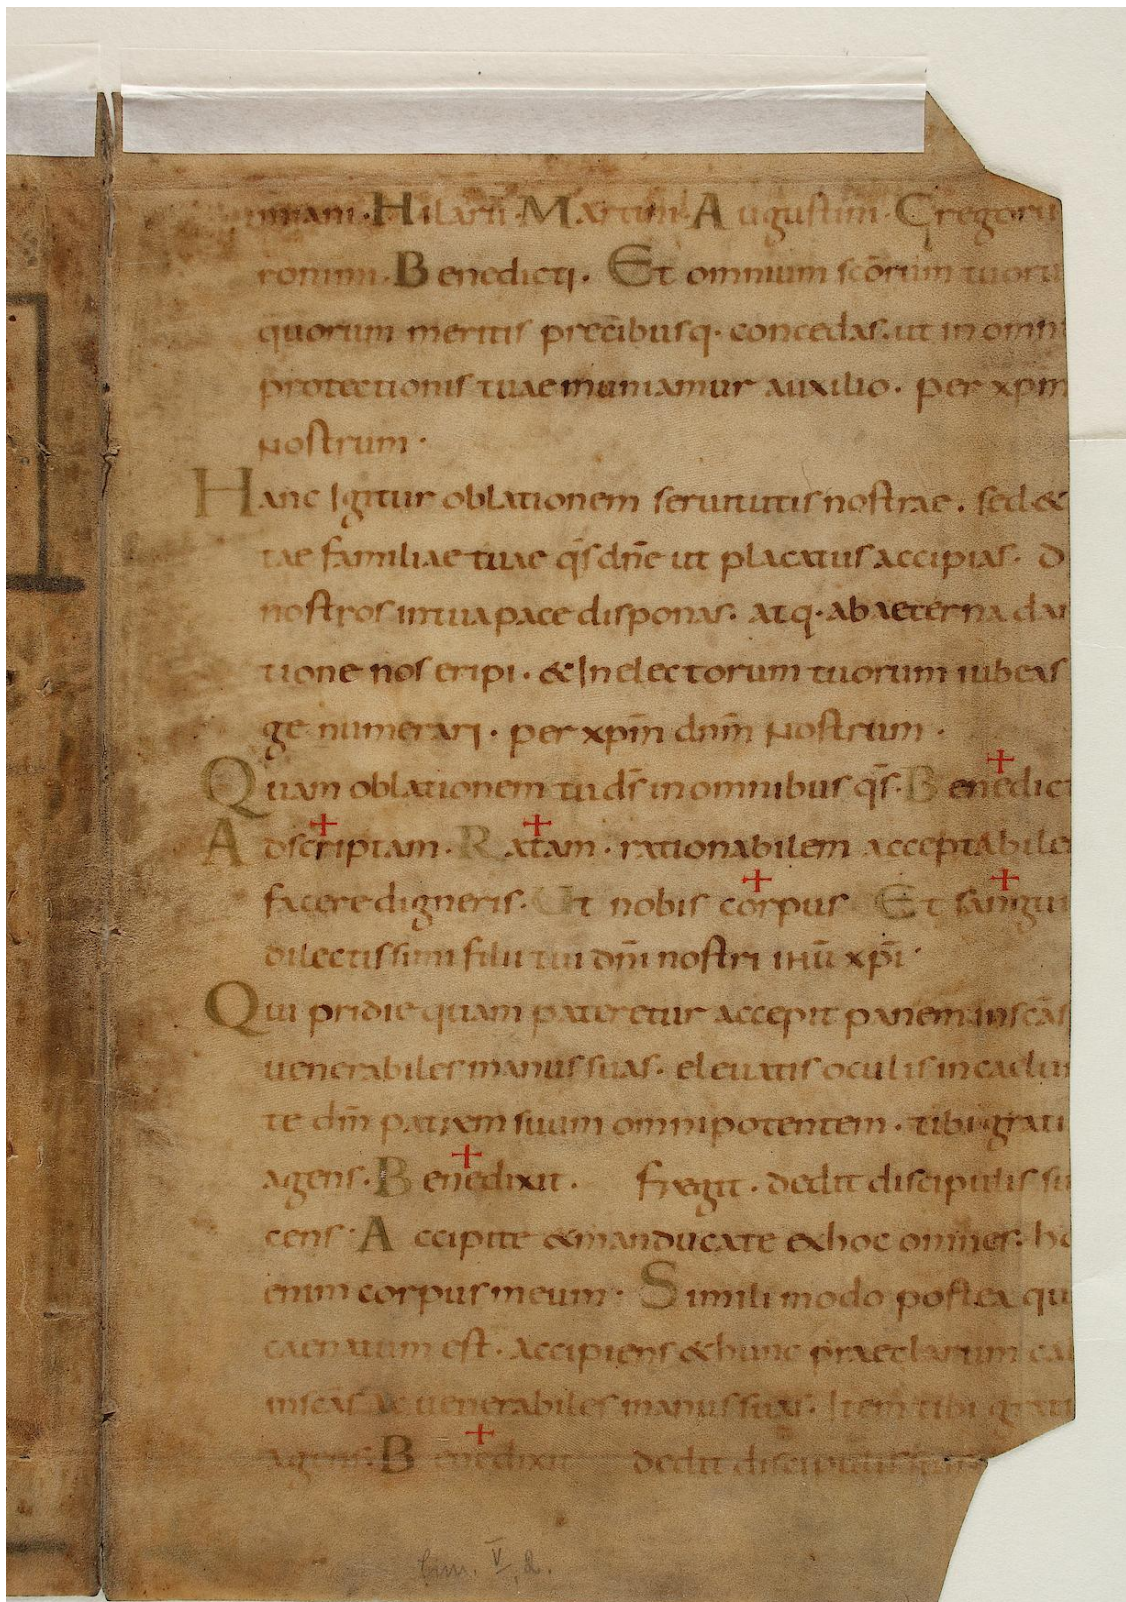 miani. Hilarii. Martini. Augustini. Gregorii
ronimi. Benedicti. Et omnium scōrum tuoru
quorum meritis precibusq. concedas. ut in omni
protectionis tuae muniamur auxilio. per xpm
Nostrum.
Hanc Igitur oblationem seruitutis nostrae. sed &
tae familiae tuae q̄s dn̄e ut placatus accipias. D
nostros in tua pace disponas. atq. ab aeterna da
tione nos eripi. & In electorum tuorum iubeas
ge numerari. per xpm̄ dnm̄ Nostrum.
Quam oblationem tu ds̄ in omnibus q̄s. Benedict
Adscriptam. Ratam. rationabilem acceptabile
facere digneris. Ut nobis corpus Et sangui
dilectissimi filii tui dn̄i nostri ihū xpī.
Qui pridie quam pateretur accepit panem in scās
uenerabiles manus suas. eleuatis oculis in caelu
te dm̄ patrem suum omnipotentem. tibi grati
agens. Benedixit. fregit. dedit discipulis su
cens. Accipite & manducate ex hoc omnes. ho
enim corpus meum. Simili modo postea qu
caenatum est. accipiens & hunc praeclarum cal
in scās ac uenerabiles manus suas. Item tibi grati
agens. Benedixit dedit discipulis suis
Cim. V, 2.